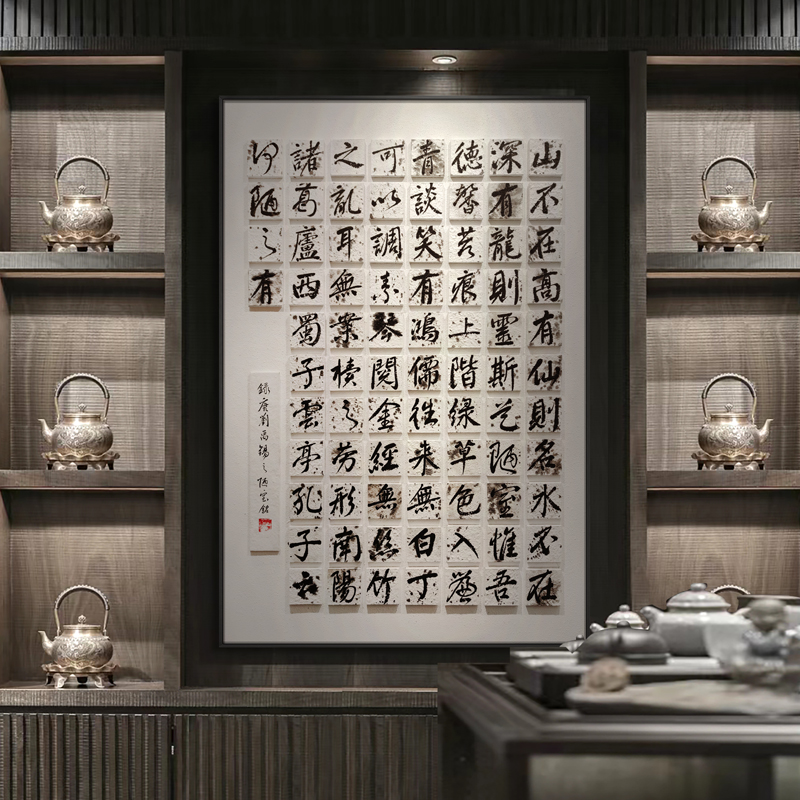 山不在高有仙則名水不在
深有龍則靈斯是陋室惟吾
德馨苔痕上階緑草色入簾
青談笑有鴻儒往来無白丁
可以調素琴閱金經無絲竹
之亂耳無案牘之勞形南陽
諸葛廬西蜀子雲亭孔子云
何陋之有
録唐劉禹錫之陋室銘